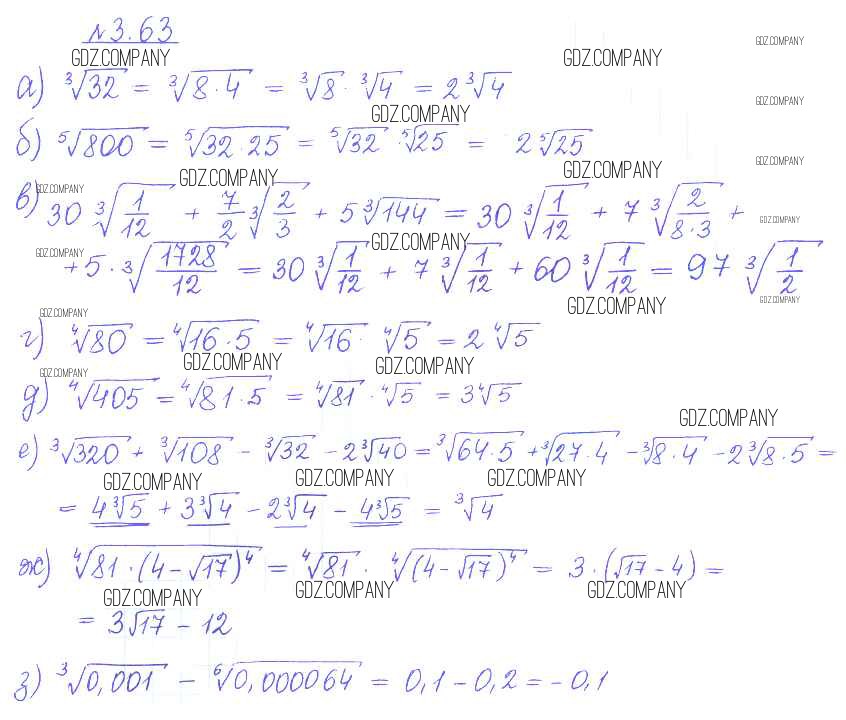 №3.63
GDZ.COMPANY GDZ.COMPANY GDZ.COMPANY
а) ∛32 = ∛(8·4) = ∛8 · ∛4 = 2∛4
GDZ.COMPANY GDZ.COMPANY
б) ⁵√800 = ⁵√(32·25) = ⁵√32 · ⁵√25 = 2 ⁵√25
GDZ.COMPANY GDZ.COMPANY GDZ.COMPANY GDZ.COMPANY
в) 30 ∛(1/12) + 7/2 ∛(2/3) + 5∛144 = 30 ∛(1/12) + 7 ∛(2/(8·3)) +
GDZ.COMPANY GDZ.COMPANY GDZ.COMPANY
+ 5 · ∛(1728/12) = 30 ∛(1/12) + 7 ∛(1/12) + 60 ∛(1/12) = 97 ∛(1/2)
GDZ.COMPANY GDZ.COMPANY GDZ.COMPANY
г) ⁴√80 = ⁴√(16·5) = ⁴√16 · ⁴√5 = 2 ⁴√5
GDZ.COMPANY GDZ.COMPANY GDZ.COMPANY
д) ⁴√405 = ⁴√(81·5) = ⁴√81 · ⁴√5 = 3⁴√5
GDZ.COMPANY
е) ∛320 + ∛108 - ∛32 - 2∛40 = ∛(64·5) + ∛(27·4) - ∛(8·4) - 2∛(8·5) =
GDZ.COMPANY GDZ.COMPANY GDZ.COMPANY
= 4∛5 + 3∛4 - 2∛4 - 4∛5 = ∛4
ж) ⁴√(81·(4-√17)⁴) = ⁴√81 · ⁴√((4-√17)⁴) = 3·(√17-4) =
GDZ.COMPANY GDZ.COMPANY GDZ.COMPANY
= 3√17 - 12
з) ∛0,001 - ⁶√0,000064 = 0,1 - 0,2 = -0,1